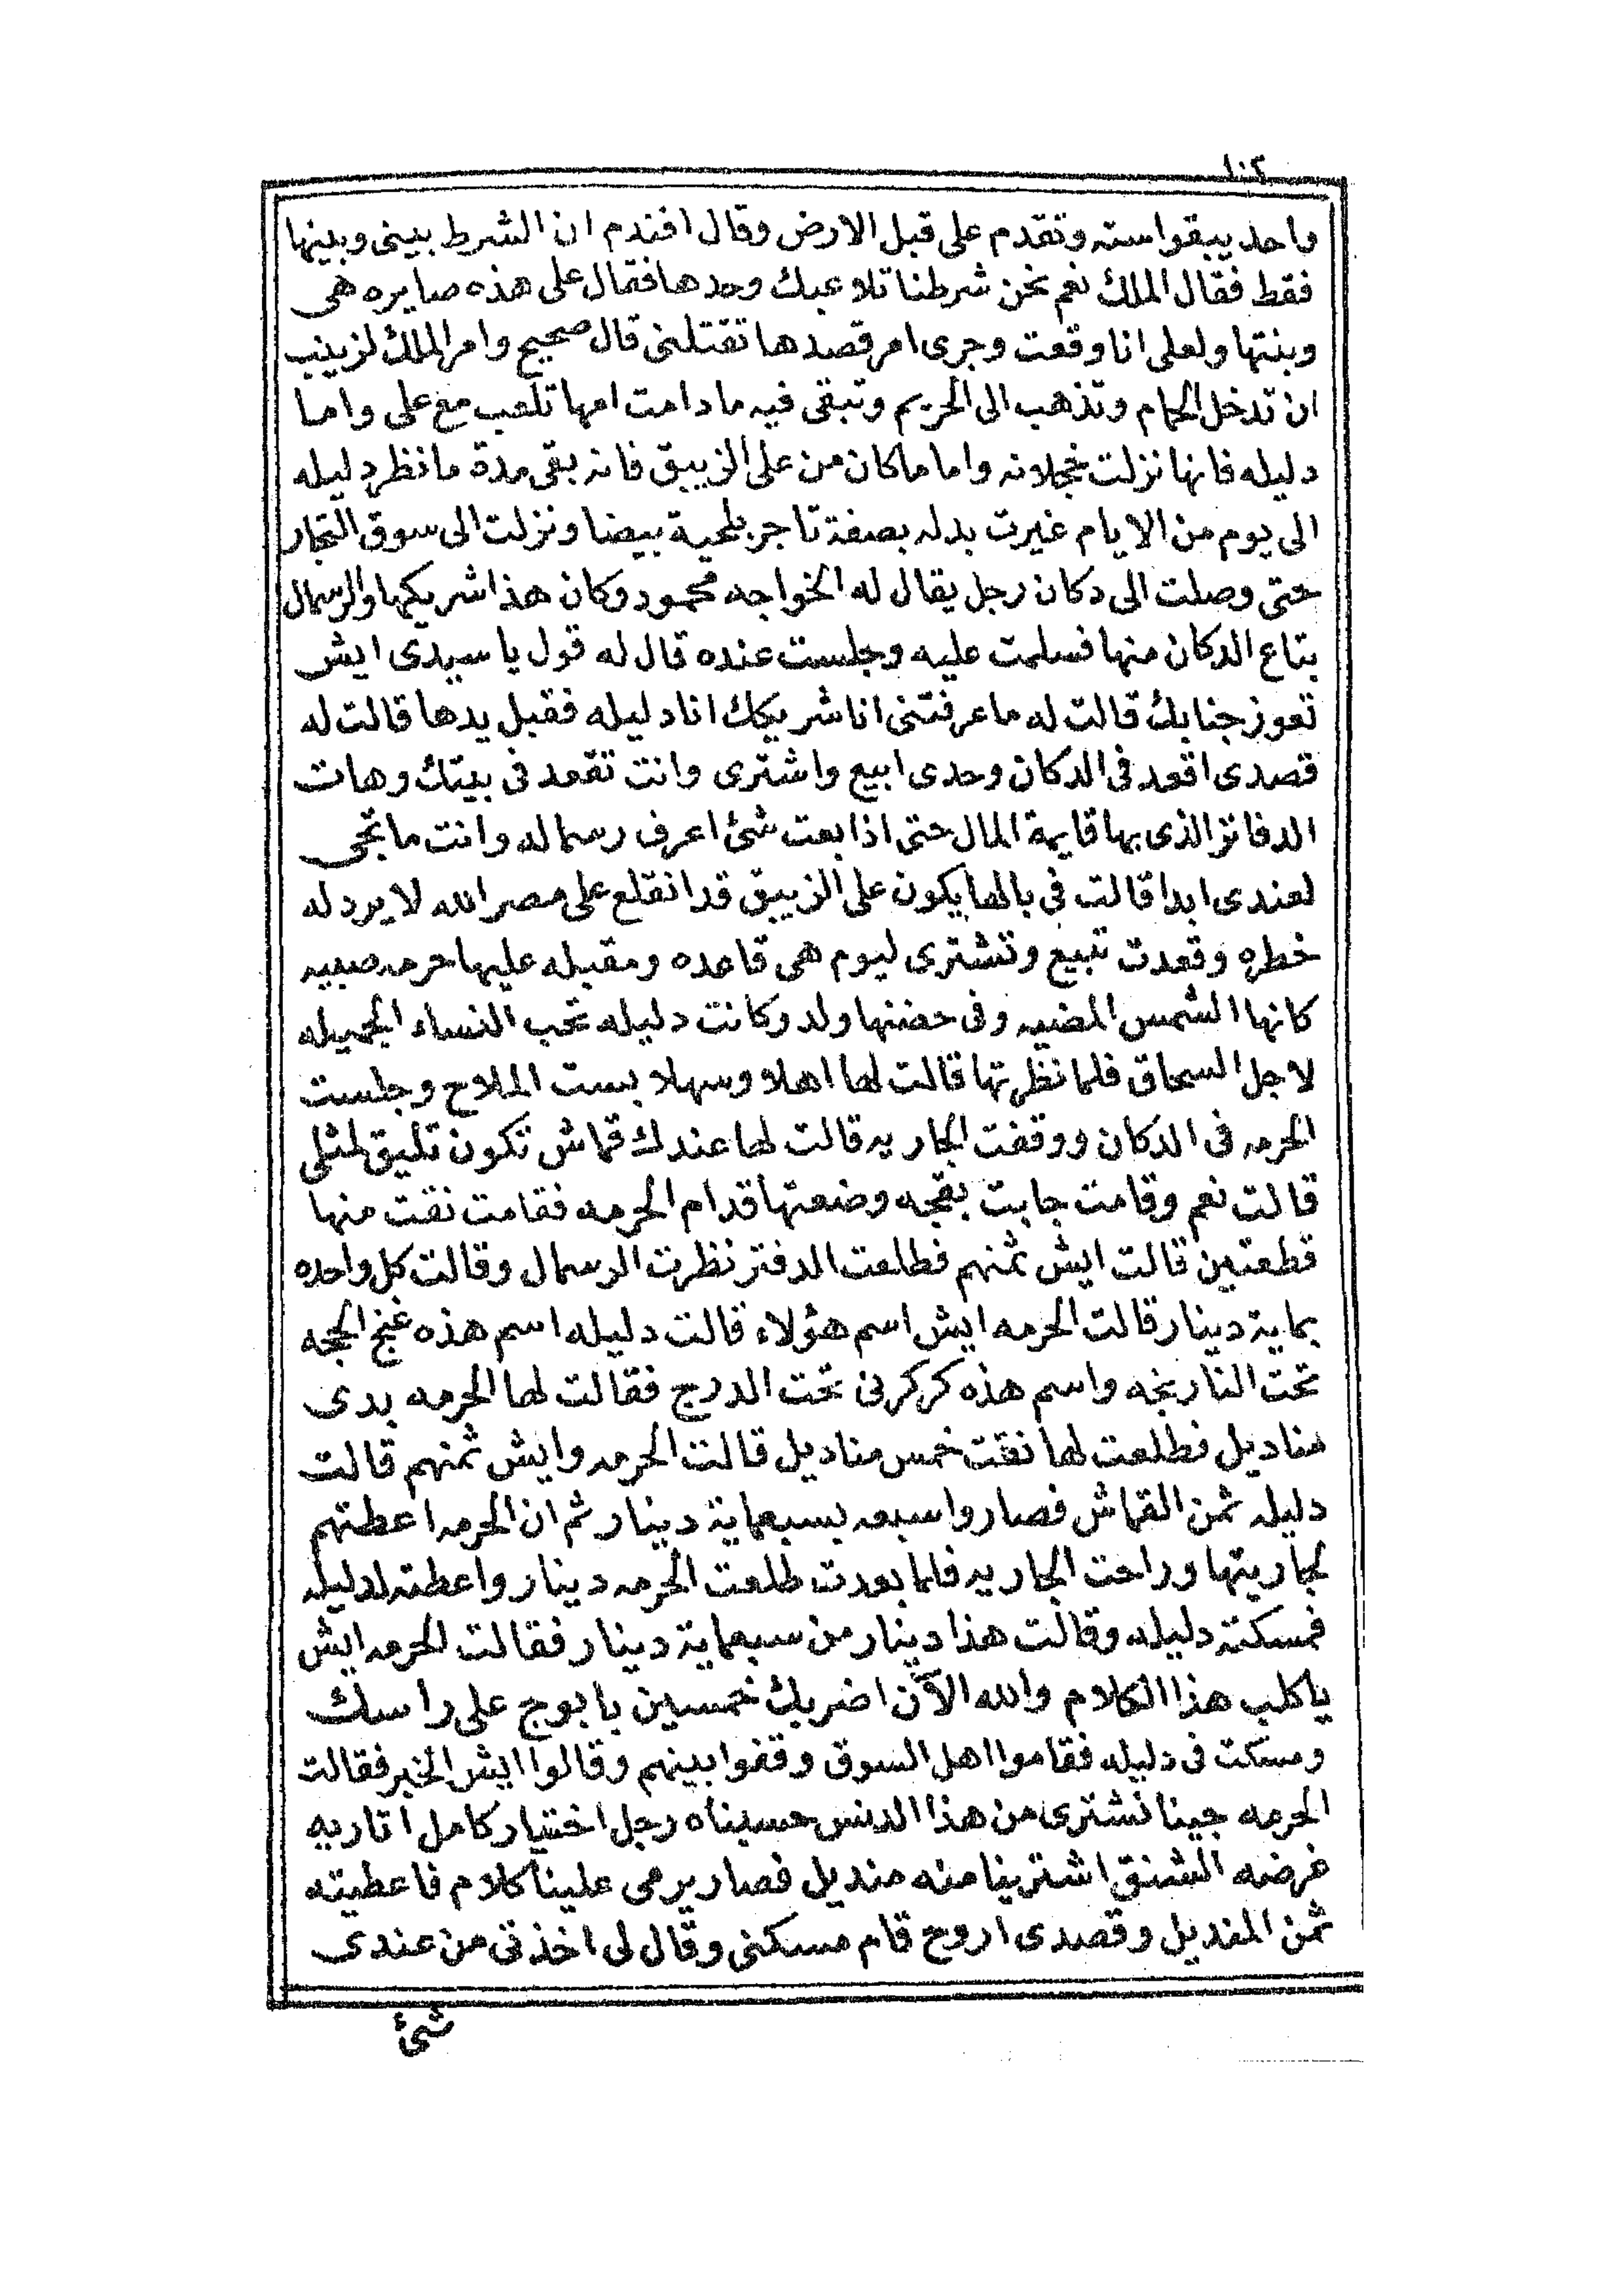 ١٠٢
واحد يبقوا سته وتقدم على قبل الارض وقال افندم ان الشرط بينى وبينها
فقط فقال الملك نعم نحن شرطنا تلاعبك وحدها فقال على هذه صايره هى
وبنتها ولعلى انا وقعت وجرى امر قصدها تقتلنى قال صحيح وامر الملك لزينب
ان تدخل الحمام وتذهب الى الحريم وتبقى فيه ما دامت امها تلعب مع على واما
دليله فانها نزلت خجلانه واما ما كان من على الزيبق فانه بقى مدة ما نظر دليله
الى يوم من الايام غيرت بدله بصفة تاجر بلحية بيضا ونزلت الى سوق التجار
حتى وصلت الى دكان رجل يقال له الخواجه محمود وكان هذا شريكها والرسمال
بتاع الدكان منها فسلمت عليه وجلست عنده قال له قول يا سيدى ايش
تعوز جنابك قالت له ما عرفتنى انا شريكك انا دليله فقبل يدها قالت له
قصدى اقعد فى الدكان وحدى ابيع واشترى وانت تقعد فى بيتك وهات
الدفاتر الذى بها قايمة المال حتى اذا بعت شئ اعرف رسماله وانت ما تجى
لعندى ابدا قالت فى بالها يكون على الزيبق قد انقلع على مصر الله لا يرد له
خطره وقعدت تبيع وتشترى ليوم هى قاعده ومقبله عليها حرمه صبيه
كانها الشمس المضيه وفى حضنها ولد وكانت دليله تحب النساء الجميله
لاجل السحاق فلما نظرتها قالت لها اهلا وسهلا بست الملاح وجلست
الحرمه فى الدكان ووقفت الجاريه قالت لها عندك قماش تكون تليق لمثلى
قالت نعم وقامت جابت بقجه وضعتها قدام الحرمه فقامت نقت منها
قطعتين قالت ايش ثمنهم فطلعت الدفتر نظرت الرسمال وقالت كل واحده
بماية دينار قالت الحرمه ايش اسم هؤلاء قالت دليله اسم هذه غنج الججه
تحت النارنجه واسم هذه كركرنى تحت الدرج فقالت لها الحرمه بدى
مناديل فطلعت لها نقت خمس مناديل قالت الحرمه وايش ثمنهم قالت
دليله ثمن القماش فصاروا سبعه بسبعماية دينار ثم ان الحرمه اعطتهم
لجاريتها وراحت الجاريه فلما بعدت طلعت الحرمه دينار واعطته لدليله
فمسكته دليله وقالت هذا دينار من سبعماية دينار فقالت الحرمه ايش
يا كلب هذا الكلام والله الآن اضربك خمسين بابوج على راسك
ومسكت فى دليله فقاموا اهل السوق وقفوا بينهم وقالوا ايش الخبر فقالت
الحرمه جينا نشترى من هذا الدنس حسبناه رجل اختيار كامل اتاريه
غرضه الشنق اشترينا منه منديل فصار يرمى علينا كلام فاعطيته
ثمن المنديل وقصدى اروح قام مسكنى وقال لى اخذتى من عندى
شئ